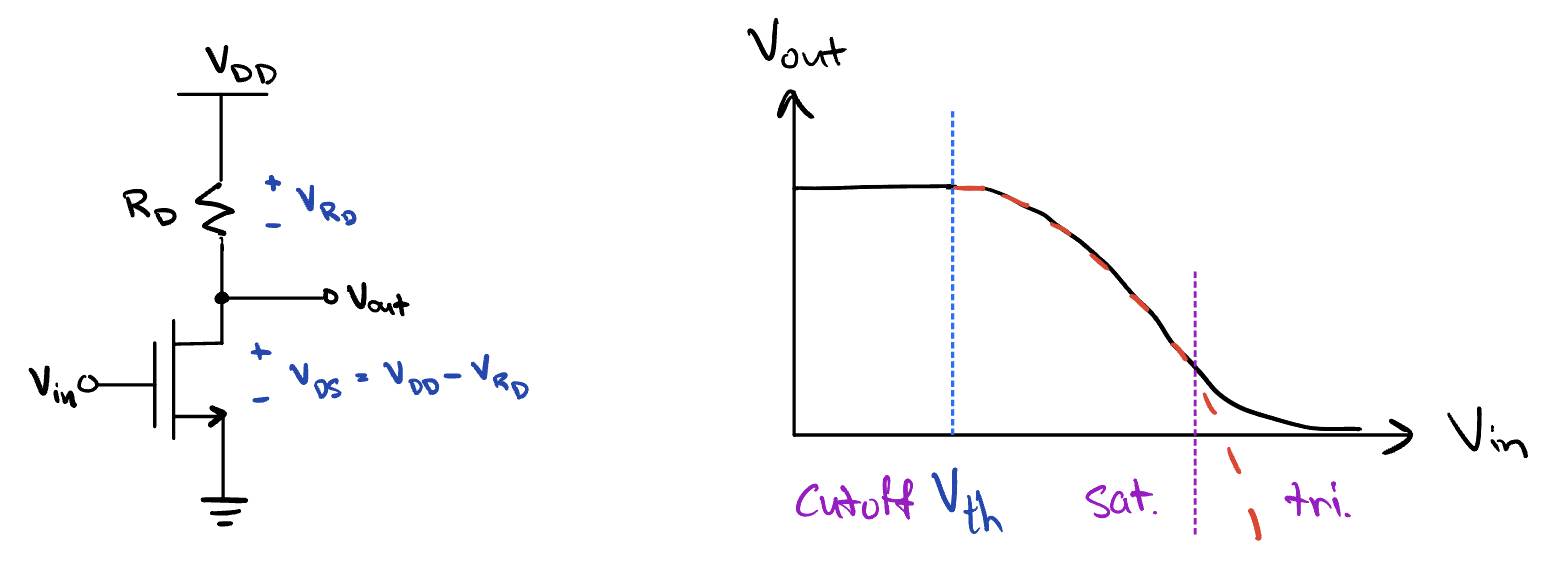 V_DD
R_D
+
V_RD
-
V_out
V_in
+
V_DS = V_DD - V_RD
-
V_out
V_in
Cutoff V_th Sat. tri.